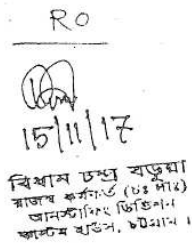 RO
15/11/17
বিধান চন্দ্র বড়ুয়া
রাজস্ব কর্মকর্তা (চঃ দাঃ)
আনস্টাফিং ডিভিশন
কাস্টম হাউস, চট্টগ্রাম।